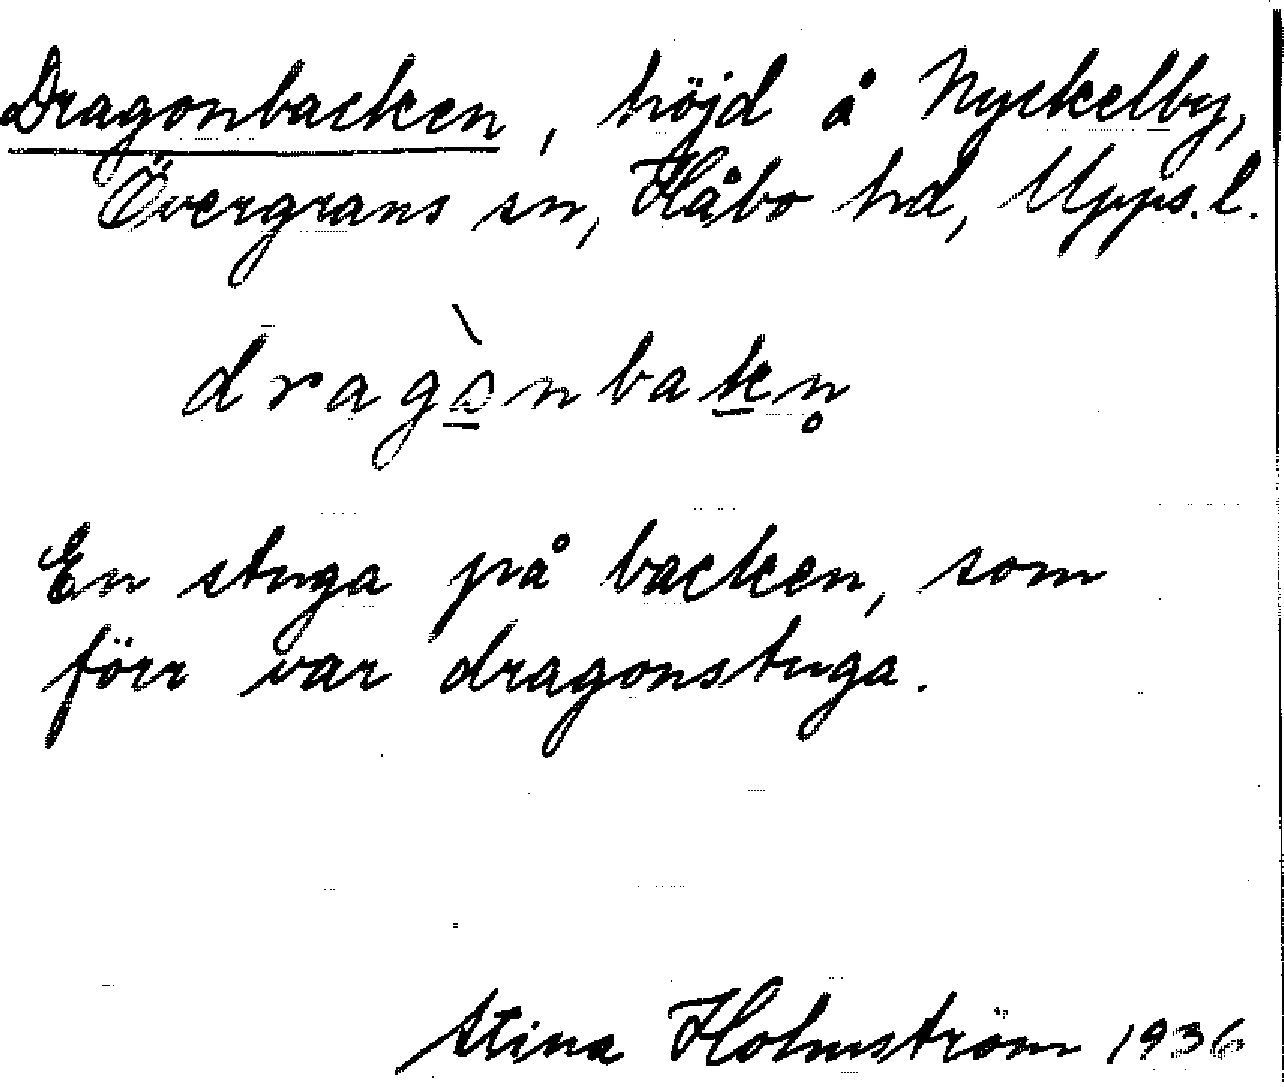 Dragonbacken, höjd å Nyckelby,
Övergrans sn, Håbo hd, Upps. l.
dragò̱nbaḵn̥
En stuga på backen, som
förr var dragonstuga.
Stina Holmström 1936